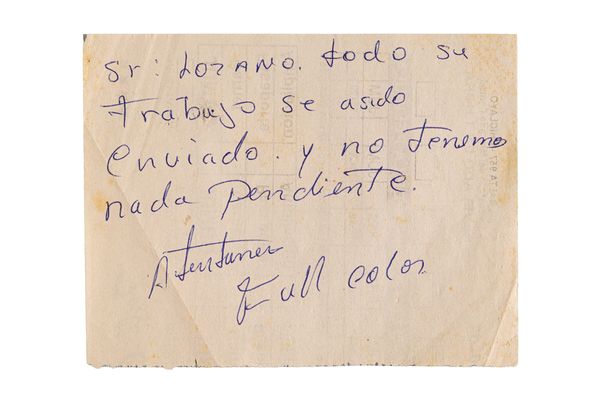 Sr: LOZANO. todo su
trabajo se asido
enviado. y no tenemo
nada pendiente.
Full color